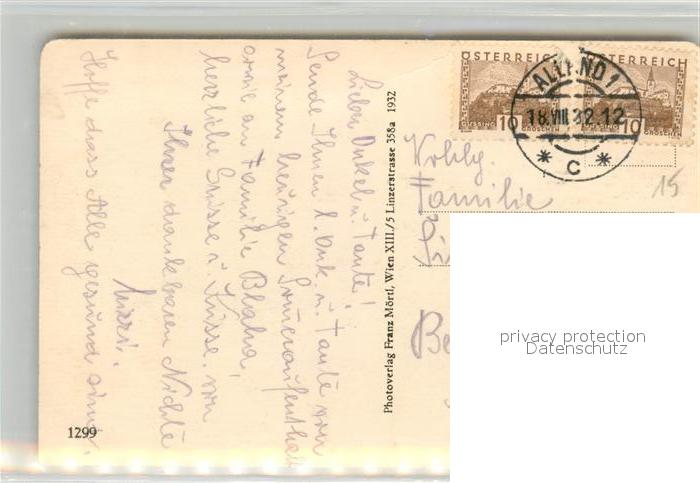 Lieber Onkel u. Tante!
Sende Ihnen l. Onk. u. Tante von
meinem heurigen Sommeraufenthalt
sowie an Familie Blaha,
herzliche Grüsse u. Küsse. von
Ihrer dankbaren Nichte
Mizzi.
Hoffe dass Alle gesund sind.
1299
Photoverlag Franz Mörtl, Wien XIII./5 Linzerstrasse 358a 1932
ÖSTERREICH
GÜSSING
10
GROSCHEN
ÖSTERREICH
GÜSSING
10
GROSCHEN
18.VIII.32.12
* C *
15
Familie
privacy protection
Datenschutz